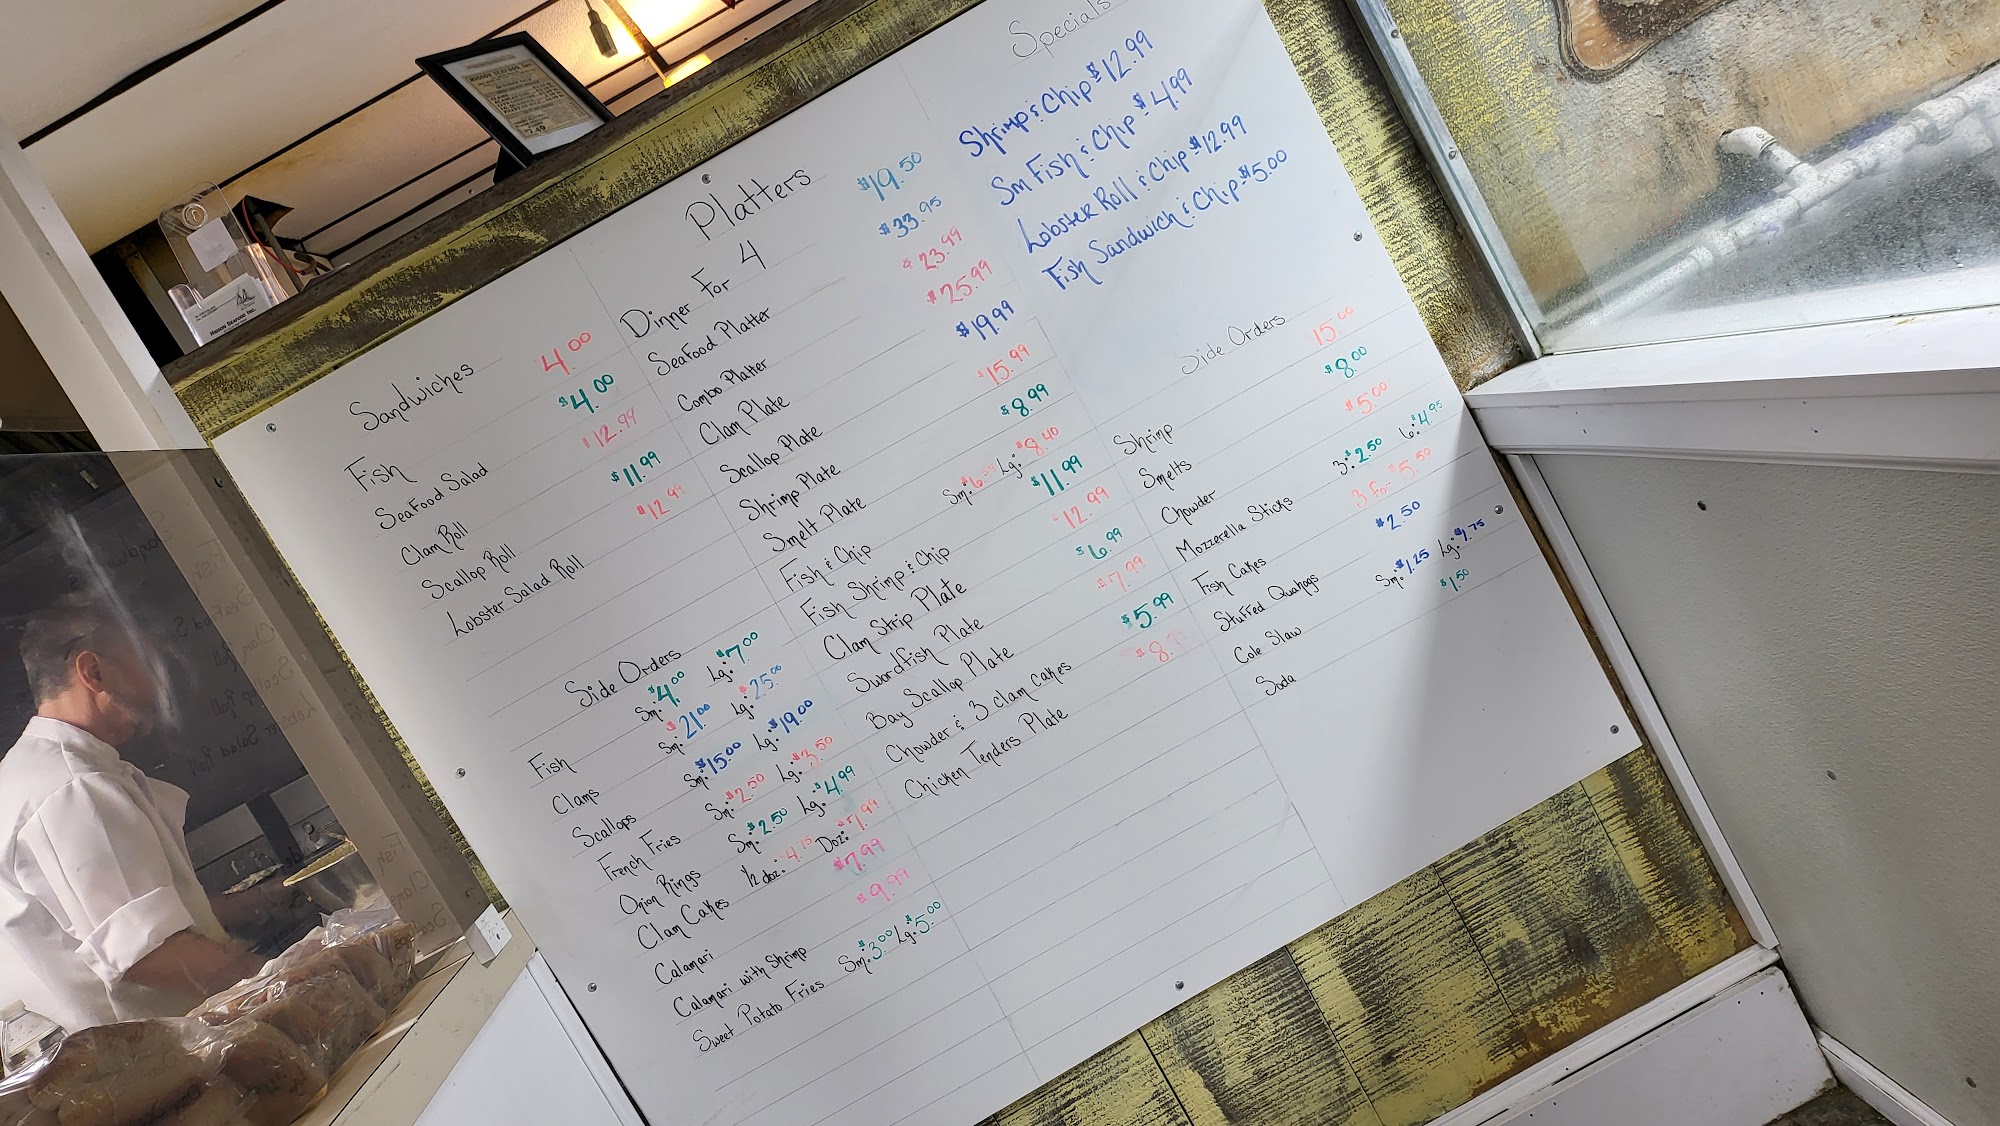 Sandwiches
Fish 4.00
Seafood Salad $4.00
Clam Roll $12.99
Scallop Roll $11.99
Lobster Salad Roll $12.99
Side Orders
Fish Sm: $4.00 Lg: $7.00
Clams Sm: $21.00 Lg: $25.00
Scallops Sm: $15.00 Lg: $19.00
French Fries Sm: $2.50 Lg: $3.50
Onion Rings Sm: $2.50 Lg: $4.99
Clam Cakes 1/2 doz: 4.15 Doz: $7.99
Calamari $7.99
Calamari with Shrimp $9.99
Sweet Potato Fries Sm: $3.00 Lg: $5.00
Platters
Dinner For 4 $19.50
Seafood Platter $33.95
Combo Platter $23.99
Clam Plate $25.99
Scallop Plate $19.99
Shrimp Plate $15.99
Smelt Plate $8.99
Fish & Chip Sm: Lg: $8.40
Fish Shrimp & Chip $11.99
Clam Strip Plate $12.99
Swordfish Plate $6.99
Bay Scallop Plate $7.99
Chowder & 3 clam cakes $5.99
Chicken Tenders Plate
Specials
Shrimp & Chip $12.99
Sm Fish & Chip $4.99
Lobster Roll & Chip $12.99
Fish Sandwich & Chip $5.00
Side Orders
Shrimp 15.00
Smelts $8.00
Chowder $5.00
Mozzerella Sticks 3: $2.50 6: $4.95
Fish Cakes 3 for $5.50
Stuffed Quahogs $2.50
Cole Slaw Sm: $1.25 Lg: $1.75
Soda $1.50